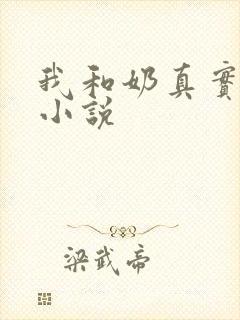 我和奶真實
小說
梁武帝